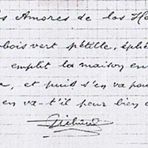 Amores de las He
bois vert pétille, siffle
emplit la maison en
, et puis s'en va pou
en va-t'il pour bien